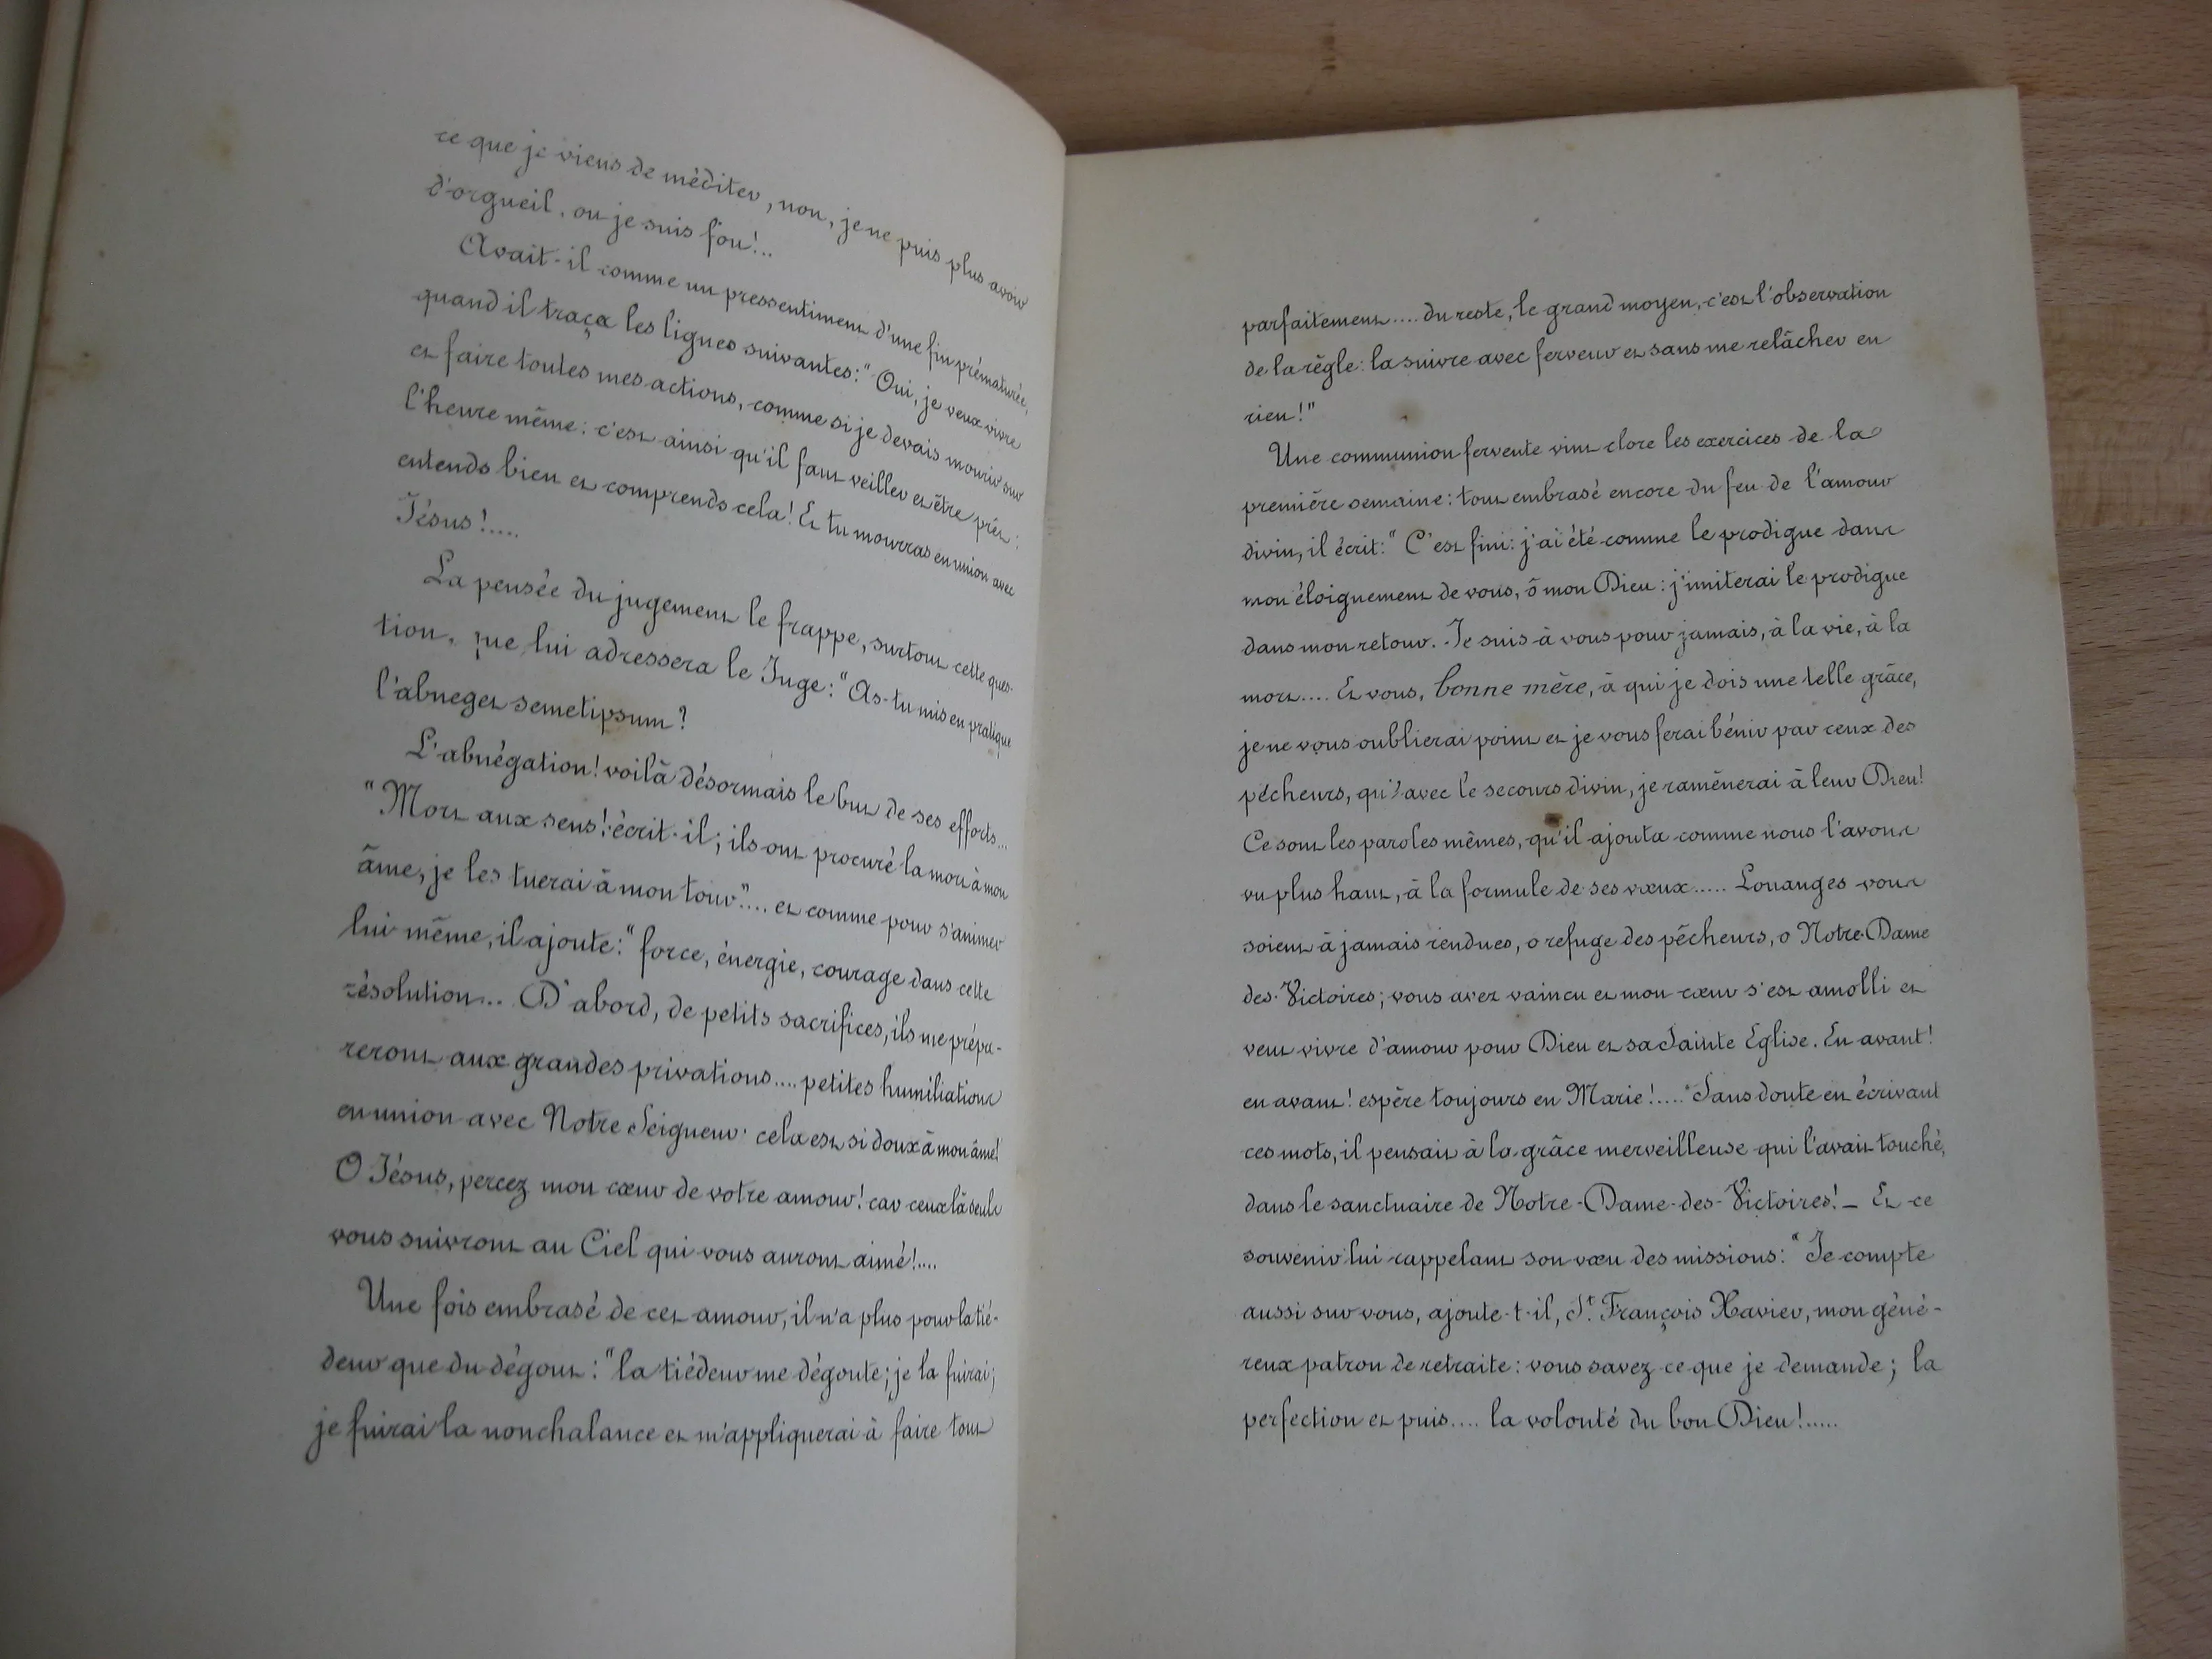 ce que je viens de méditer, non, je ne puis plus avoir
d'orgueil, ou je suis fou!..
Avait-il comme un pressentiment d'une fin prématurée,
quand il traça les lignes suivantes: "Oui, je veux vivre
et faire toutes mes actions, comme si je devais mourir sur
l'heure même: c'est ainsi qu'il faut veiller et être prêt:
entends bien et comprends cela! Et tu mourras en union avec
Jésus!....
La pensée du jugement le frappe, surtout cette ques-
tion, que lui adressera le Juge: "As-tu mis en pratique
l'abneget semetipsum?
L'abnégation! voilà désormais le but de ses efforts...
"Mort aux sens! écrit-il; ils ont procuré la mort à mon
âme, je les tuerai à mon tour".... et comme pour s'animer
lui même, il ajoute: "force, énergie, courage dans cette
résolution... D'abord, de petits sacrifices, ils me prépa-
reront aux grandes privations.... petites humiliations
en union avec Notre Seigneur. cela est si doux à mon âme!
O Jésus, percez mon cœur de votre amour! car ceux là seuls
vous suivront au Ciel qui vous auront aimé!....
Une fois embrasé de cet amour, il n'a plus pour la tié-
deur que du dégout: "la tiédeur me dégoute; je la fuirai;
je fuirai la nonchalance et m'appliquerai à faire tout
parfaitement.... du reste, le grand moyen, c'est l'observation
de la règle: la suivre avec ferveur et sans me relâcher en
rien!"
Une communion fervente vint clore les exercices de la
première semaine: tout embrasé encore du feu de l'amour
divin, il écrit: "C'est fini: j'ai été comme le prodigue dans
mon éloignement de vous, ô mon Dieu: j'imiterai le prodigue
dans mon retour. Je suis à vous pour jamais, à la vie, à la
mort.... Et vous, bonne mère, à qui je dois une telle grâce,
je ne vous oublierai point et je vous ferai bénir par ceux des
pécheurs, qu'avec le secours divin, je ramènerai à leur Dieu!
Ce sont les paroles mêmes, qu'il ajouta comme nous l'avons
vu plus haut, à la formule de ses vœux..... Louanges vous
soient à jamais rendues, o refuge des pécheurs, o Notre-Dame
des-Victoires; vous avez vaincu et mon cœur s'est amolli et
veut vivre d'amour pour Dieu et sa Sainte Eglise. En avant!
en avant! espère toujours en Marie!....." Sans doute en écrivant
ces mots, il pensait à la grâce merveilleuse qui l'avait touché,
dans le sanctuaire de Notre-Dame-des-Victoires! _ Et ce
souvenir lui rappelant son vœu des missions: "Je compte
aussi sur vous, ajoute-t-il, St. François Xavier, mon géné-
reux patron de retraite: vous savez ce que je demande; la
perfection et puis.... la volonté du bon Dieu!.....